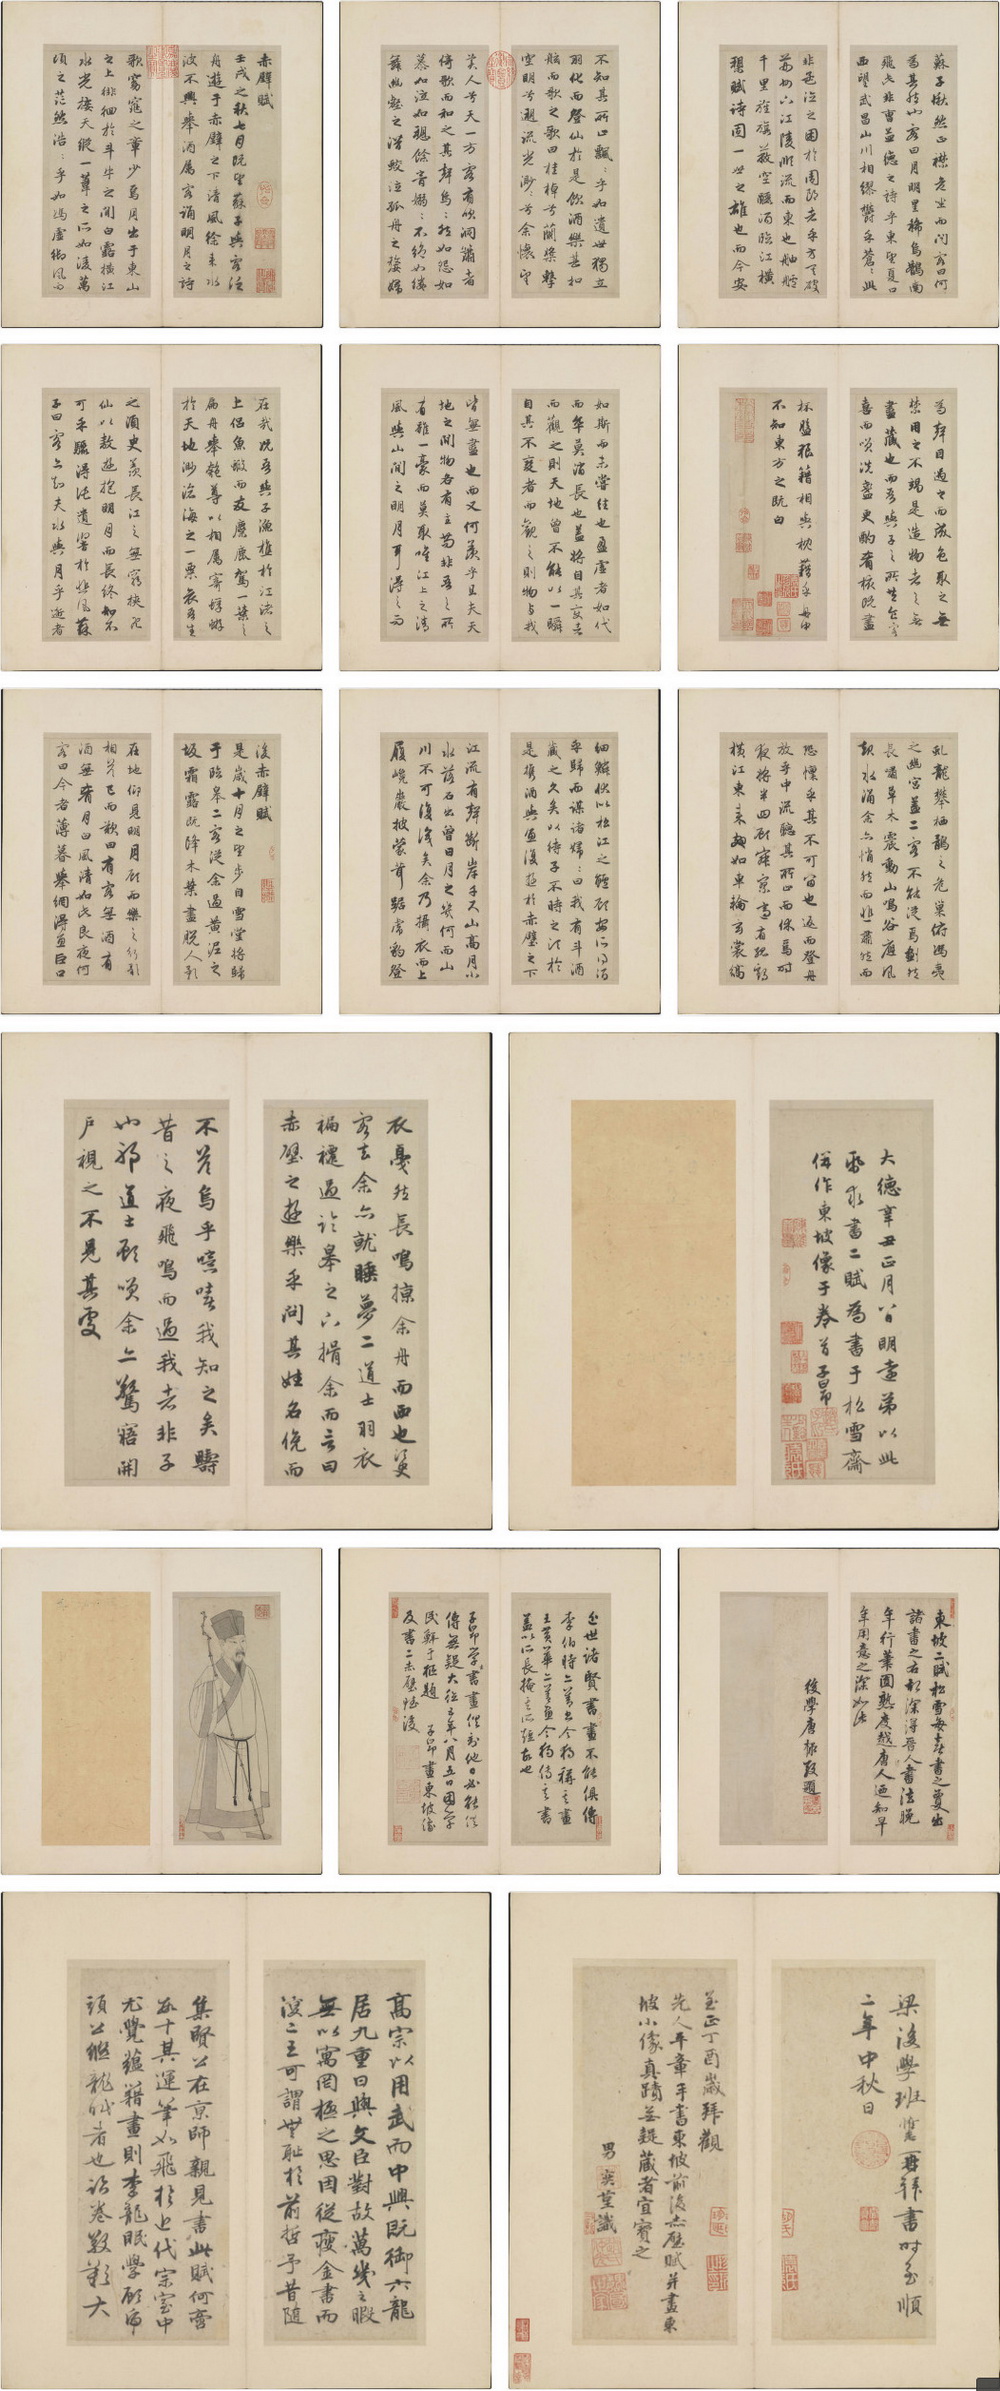 赤壁賦
壬戌之秋七月既望蘇子與客泛
舟遊于赤壁之下清風徐來水
波不興舉酒屬客誦明月之詩
歌窈窕之章少焉月出于東山
之上徘徊於斗牛之間白露橫江
水光接天縱一葦之所如凌萬
頃之茫然浩浩乎如馮虛御風而
不知其所止飄飄乎如遺世獨立
羽化而登仙於是飲酒樂甚扣
舷而歌之歌曰桂棹兮蘭槳擊
空明兮遡流光渺渺兮余懷望
美人兮天一方客有吹洞簫者
倚歌而和之其聲嗚嗚然如怨如
慕如泣如訴餘音嫋嫋不絕如縷
舞幽壑之潛蛟泣孤舟之嫠婦
蘇子愀然正襟危坐而問客曰何
為其然也客曰月明星稀烏鵲南
飛此非曹孟德之詩乎東望夏口
西望武昌山川相繆鬱乎蒼蒼此
非孟德之困於周郎者乎方其破
荊州下江陵順流而東也舳艫
千里旌旗蔽空釃酒臨江橫
槊賦詩固一世之雄也而今安
在哉況吾與子漁樵於江渚之
上侶魚蝦而友麋鹿駕一葉之
扁舟舉匏尊以相屬寄蜉蝣
於天地渺滄海之一粟哀吾生
之須臾羨長江之無窮挾飛
仙以遨遊抱明月而長終知不
可乎驟得託遺響於悲風蘇
子曰客亦知夫水與月乎逝者
如斯而未嘗往也盈虛者如代
而卒莫消長也蓋將自其變者
而觀之則天地曾不能以一瞬
自其不變者而觀之則物與我
皆無盡也而又何羨乎且夫天
地之間物各有主苟非吾之所
有雖一毫而莫取惟江上之清
風與山間之明月耳得之而
為聲目遇之而成色取之無
禁用之不竭是造物者之無
盡藏也而吾與子之所共食客
喜而笑洗盞更酌肴核既盡
杯盤狼籍相與枕藉乎舟中
不知東方之既白
後赤壁賦
是歲十月之望步自雪堂將歸
于臨皋二客從余過黃泥之
坂霜露既降木葉盡脫人影
在地仰見明月顧而樂之行歌
相答已而歎曰有客無酒有
酒無肴月白風清如此良夜何
客曰今者薄暮舉網得魚巨口
細鱗狀似松江之鱸顧安所得酒
乎歸而謀諸婦婦曰我有斗酒
藏之久矣以待子不時之須於
是攜酒與魚復遊於赤壁之下
江流有聲斷岸千尺山高月小
水落石出曾日月之幾何而山
川不可復識矣余乃攝衣而上
履巉巖披蒙茸踞虎豹登
虬龍攀栖鶻之危巢俯馮夷
之幽宮蓋二客不能從焉劃然
長嘯草木震動山鳴谷應風
起水涌余亦悄然而悲肅然而
恐懍乎其不可留也返而登舟
放乎中流聽其所止而休焉時
夜將半四顧寂寥適有孤鶴
橫江東來翅如車輪玄裳縞
衣戛然長鳴掠余舟而西也須臾
客去余亦就睡夢二道士羽衣
褊褼過臨皋之下揖余而言曰
赤壁之遊樂乎問其姓名俛而
不答烏乎噫嘻我知之矣疇
昔之夜飛鳴而過我者非子
也邪道士顧笑余亦驚寤開
戶視之不見其處
大德辛丑正月八日明遠弟以此
紙求書二賦為書于松雪齋
併作東坡像于卷首子昂
東坡二賦松雪每喜書之此出
諸書之右都深得晉人書法晚
年行筆圓熟度越唐人迺知早
年用意之深如此
後學唐棣敬題
近世諸賢書畫不能俱傳
李伯時二善出今獨稱其畫
王黃華二善兼今獨傳其書
蓋以所長掩其所短故也
子昂學書畫俱到他日必能俱
傳無疑大德五年八月五日困學
民鮮于樞題
子昂畫東坡像
及書二赤壁賦後
高宗以用武而中興既御六龍
居九重日與文臣對故萬幾之暇
無以寓罔極之思因從瘦金書而
溲二王可謂無耻於前哲予昔隨
集賢公在京師親見書此賦何啻
數十其運筆如飛於近代宗室中
尤覺蘊藉畫則李龍眠學顧虎
頭公繼龍眠者也訪卷敬歎大
梁後學班惟志再拜書時至順
二年中秋日
至正丁酉歲拜觀
先人平章手書東坡前後赤壁賦并畫東
坡小像真蹟無疑藏者宜寶之
男奕謹識